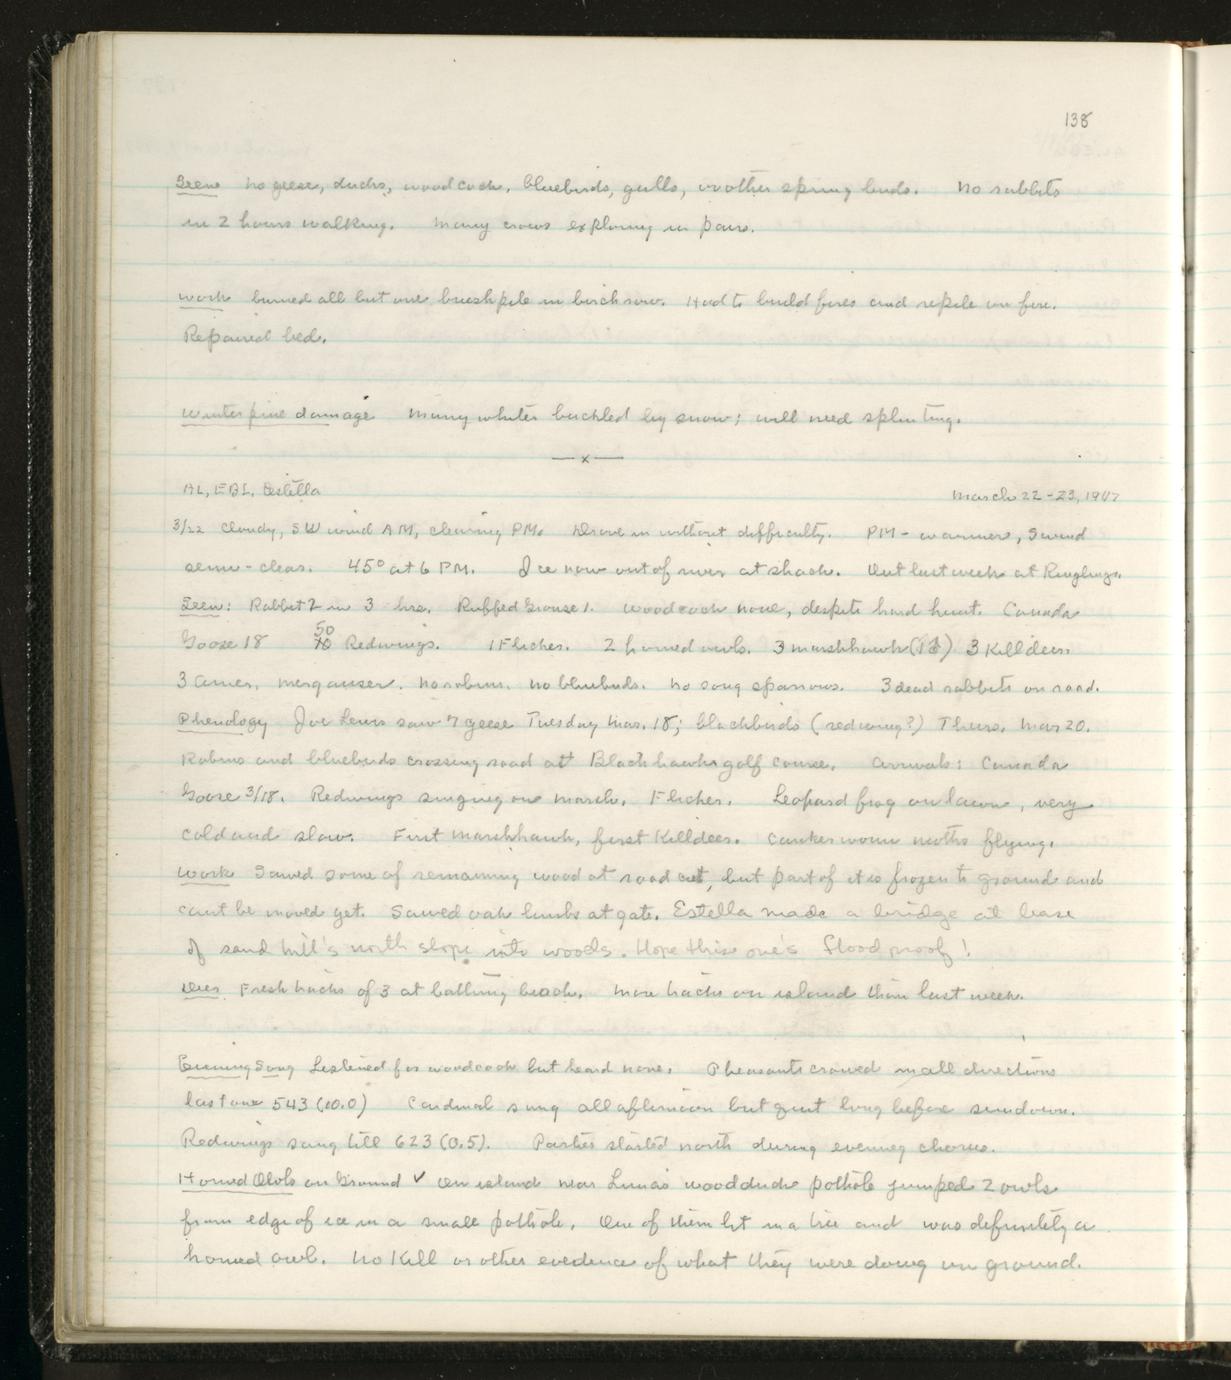 138
Seen No geese, ducks, woodcock, bluebirds, gulls, or other spring birds. No rabbits
in 2 hours walking. Many crows exploring in pairs.
Work burned all but one brushpile in birch row. Had to build fires and repile on fire.
Repaired bed.
Winter pine damage Many whites buckled by snow; will need splinting.
—x—
AL, EBL, Estella March 22-23, 1947
3/22 Cloudy, SW wind AM, clearing PM. Drove in without difficulty. PM - warmer, S wind
semi-clear. 45° at 6 PM. Ice now out of river at shack. Out last week at Ringlings.
Seen: Rabbit 2 in 3 hrs. Ruffed Grouse 1. Woodcock none, despite hard hunt. Canada
Goose 18 50 Redwings. 1 Flicker. 2 horned owls. 3 marshhawk (1♂) 3 Killdeer.
3 Amer. merganser. No robins. No bluebirds. No song sparrows. 3 dead rabbits on road.
Phenology Joe Lewis saw 7 geese Tuesday Mar. 18; blackbirds (redwing?) Thurs. Mar 20.
Robins and bluebirds crossing road at Blackhawk golf course. Arrivals: Canada
Goose 3/18. Redwings singing on marsh. Flicker. Leopard frog on lawn, very
cold and slow. First marshhawk, first Killdeer. Cankerworm moths flying.
Work Sawed some of remaining wood at road cut, but part of it is frozen to ground and
cant be moved yet. Sawed oak limbs at gate. Estella made a bridge at base
of sand hill's north slope into woods. Hope this one's flood proof!
Deer Fresh tracks of 3 at bathing beach. More tracks on island than last week.
Evening Song Listened for woodcock but heard none. Pheasants crowed in all directions
last one 543 (10.0) Cardinal sang all afternoon but quit long before sundown.
Redwings sang till 623 (0.5). Parties started north during evening chorus.
Horned Owls on Ground ✓ On island near Luna's woodduck pothole jumped 2 owls
from edge of ice in a small pothole. One of them lit in a tree and was definitely a
horned owl. No kill or other evidence of what they were doing on ground.